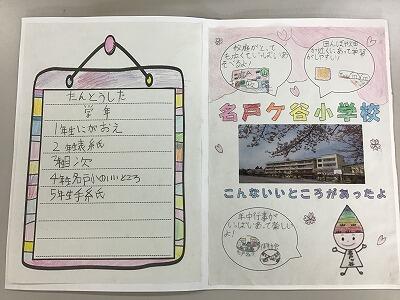 たんとうした
学年
1年生にがおえ
2年生表紙
3相次
4年生名戸小のいいところ
5年生手紙
校庭がとっても広くていっぱいあそべるよ!
田んぼや畑が近くにあって学習がしやすい!
名戸ケ谷小学校
こんないいところがあったよ
年中行事がいっぱいあって楽しいよ!